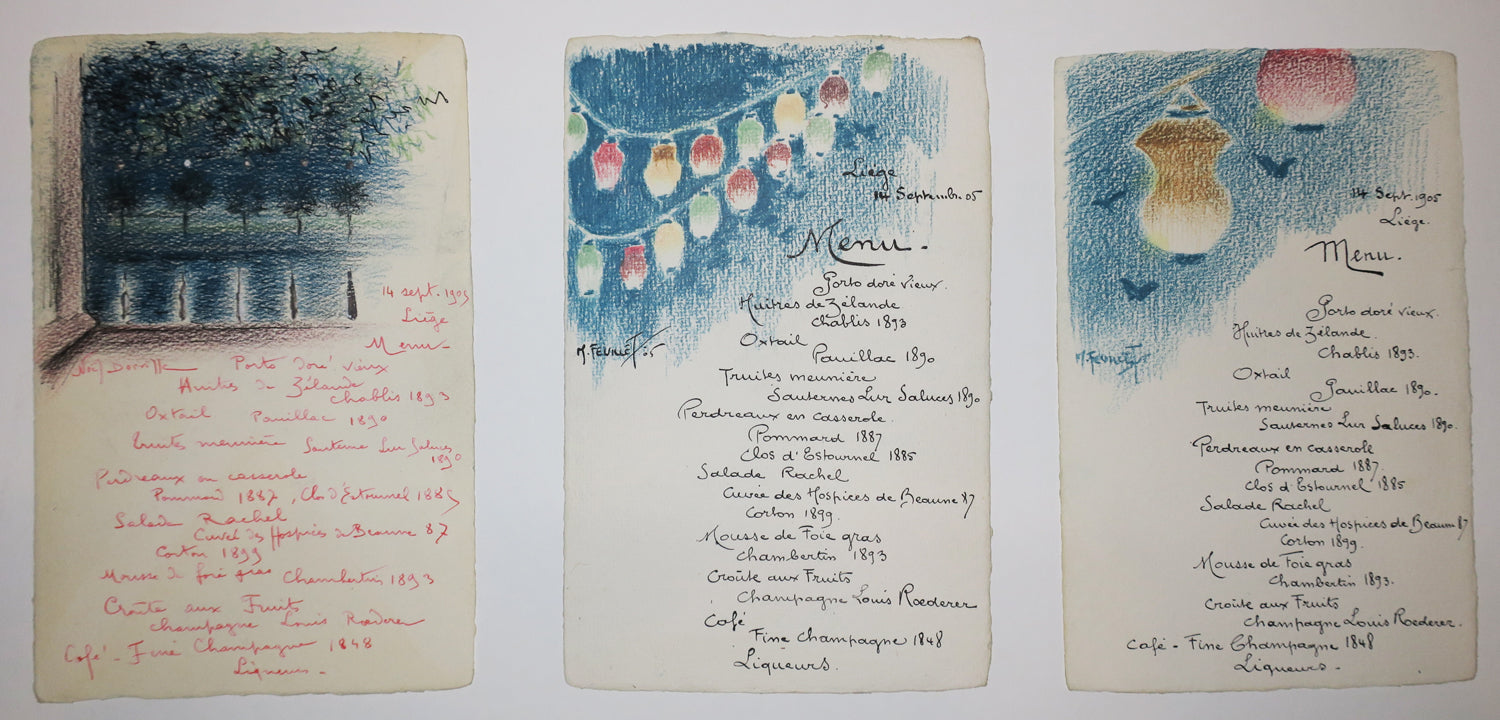 14 sept. 1905
Liège
Menu
Noël Dorville Porto doré vieux
Huitres de Zélande
Chablis 1893
Oxtail Pauillac 1890
Truites meunière Sauterne Lur Saluces
1890
Perdreaux en casserole
Pommard 1887, Clos d'Estournel 1885
Salade Rachel
Cuveé des Hospices de Beaune 87
Corton 1899
Mousse de foie gras Chambertin 1893
Croûte aux Fruits
Champagne Louis Rœderer
Café - Fine Champagne 1848
Liqueurs -
Liège
14 Septembr. 05
Menu -
Porto doré vieux.
Huitres de Zélande
Chablis 1893
M. FEUILLET 05
Oxtail
Pauillac 1890
Truites meunière
Sauternes Lur Saluces 1890
Perdreaux en casserole.
Pommard 1887
Clos d'Estournel 1885
Salade Rachel
Cuvée des Hospices de Beaune 87
Corton 1899.
Mousse de Foie gras
Chambertin 1893
Croûte aux Fruits
Champagne Louis Rœderer
Café
Fine Champagne 1848
Liqueurs.
14 Sept. 1905
Liège.
Menu.
Porto doré vieux.
Huitres de Zélande.
Chablis 1893.
M. FEUILLET 05
Oxtail
Pauillac 1890.
Truites meunière
Sauternes Lur Saluces 1890.
Perdreaux en casserole
Pommard 1887.
Clos d'Estournel 1885
Salade Rachel
Cuvée des Hospices de Beaune 87
Corton 1899.
Mousse de Foie gras
Chambertin 1893.
Croûte aux Fruits
Champagne Louis Rœderer.
Café - Fine Champagne 1848
Liqueurs -